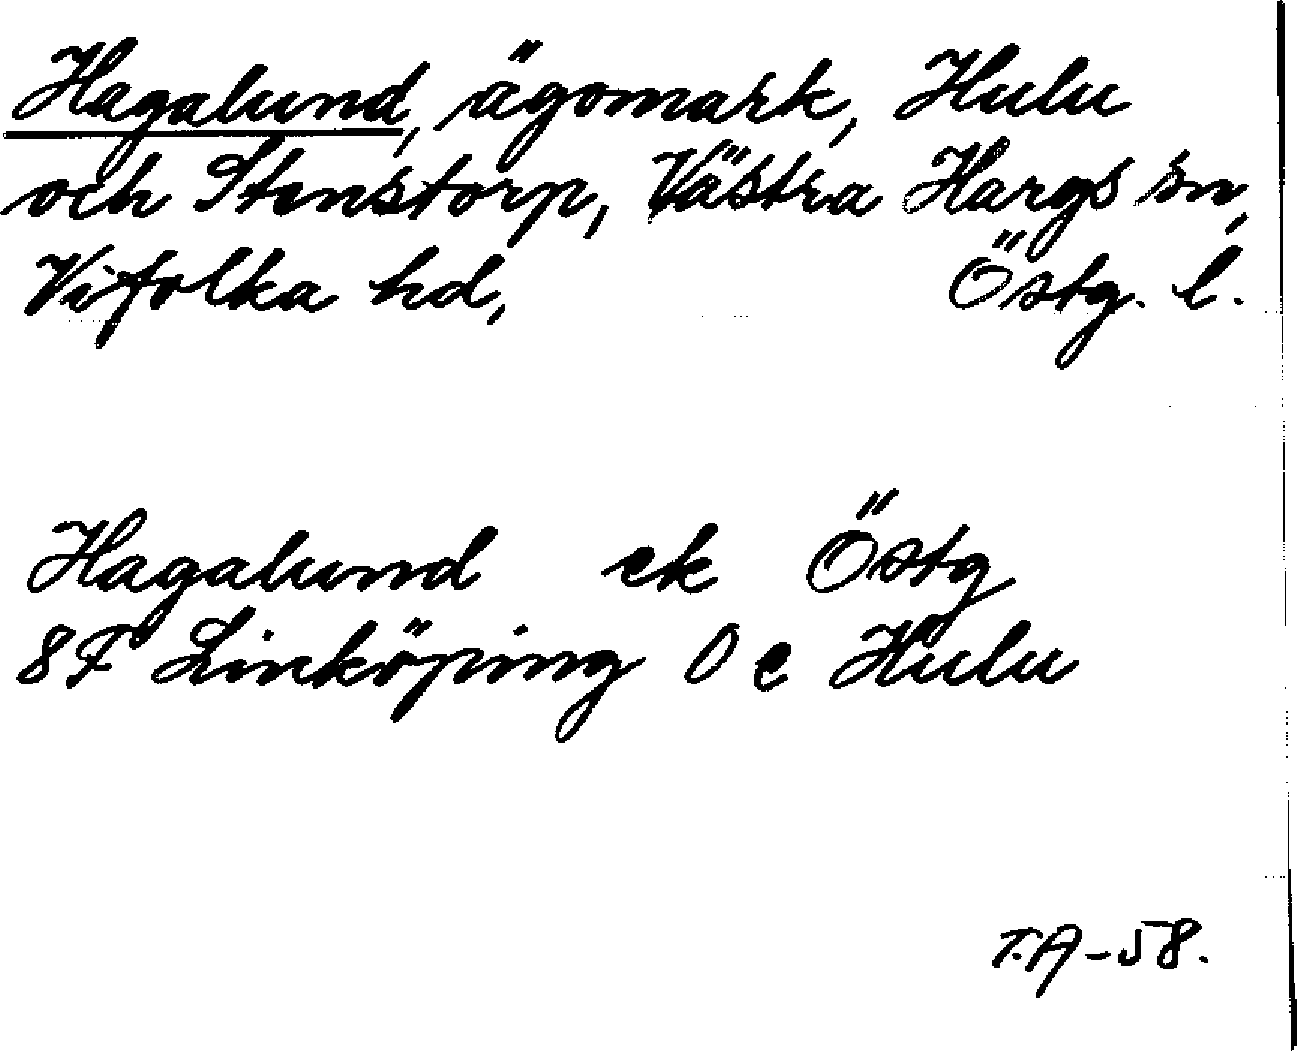 Hagalund, ägomark, Hulu
och Stenstorp, Västra Hargs sn,
Vifolka hd, Östg. l.
Hagalund ek Östg
8F Linköping 0e Hulu
T.A-58.